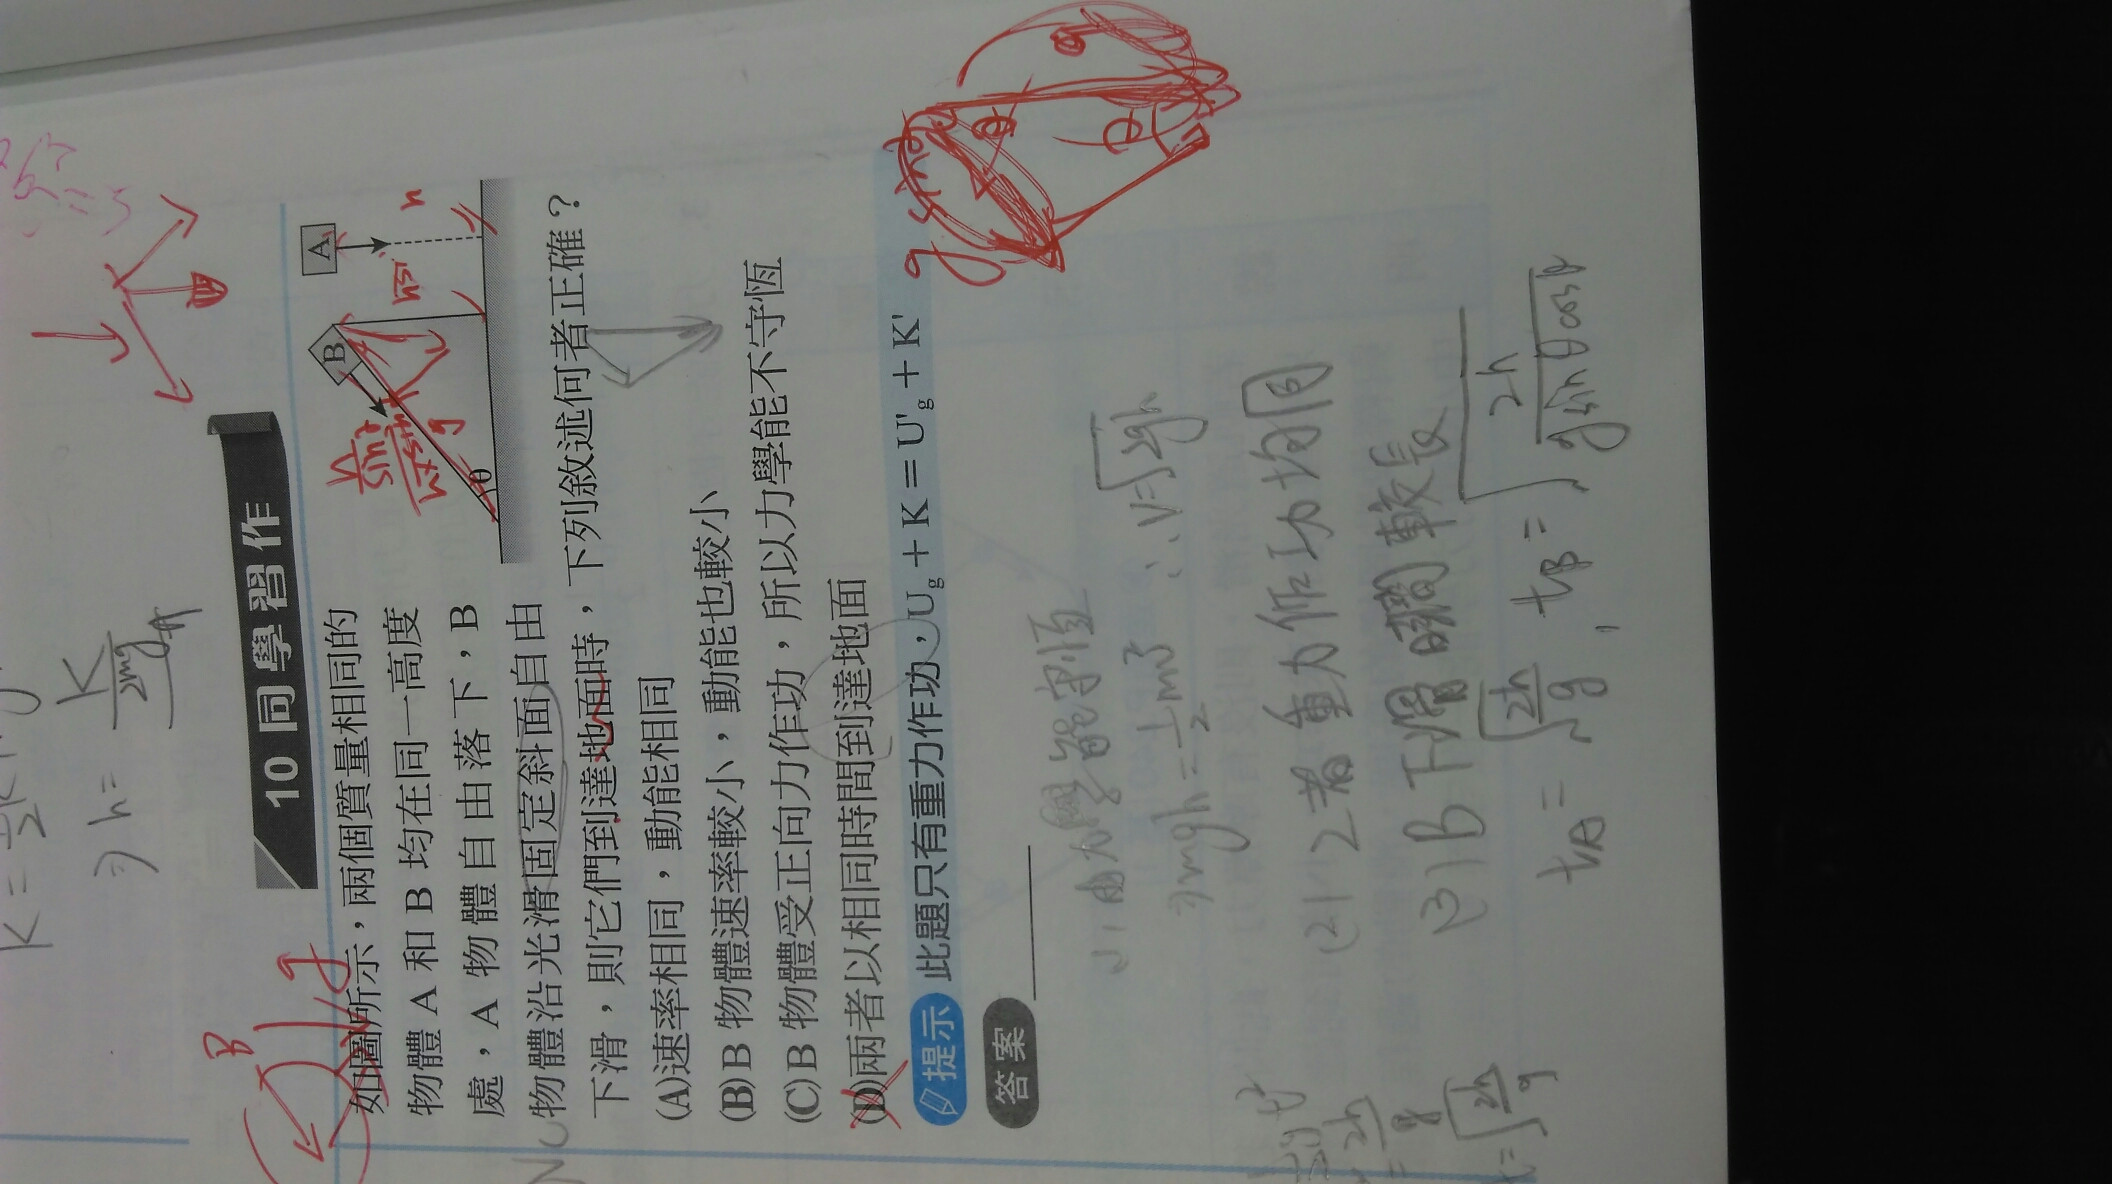 K =
⇒ h = K/2mg
10 同學習作
如圖所示，兩個質量相同的
物體 A 和 B 均在同一高度
處，A 物體自由落下，B
物體沿光滑固定斜面自由
下滑，則它們到達地面時，下列敘述何者正確？
(A)速率相同，動能相同
(B) B 物體速率較小，動能也較小
(C) B 物體受正向力作功，所以力學能不守恆
(D)兩者以相同時間到達地面
A
B
θ
h
B
g
提示 此題只有重力作功，Ug + K = U'g + K'
g sinθ
θ
θ
答案
(1) 由力學能守恆
⇒ mgh = 1/2 mv² ∴ v = √2gh
(2) 2者重力作功均同
(3) B 下滑時間較長
tA = √(2h/g) , tB =
t = √(2h/g)